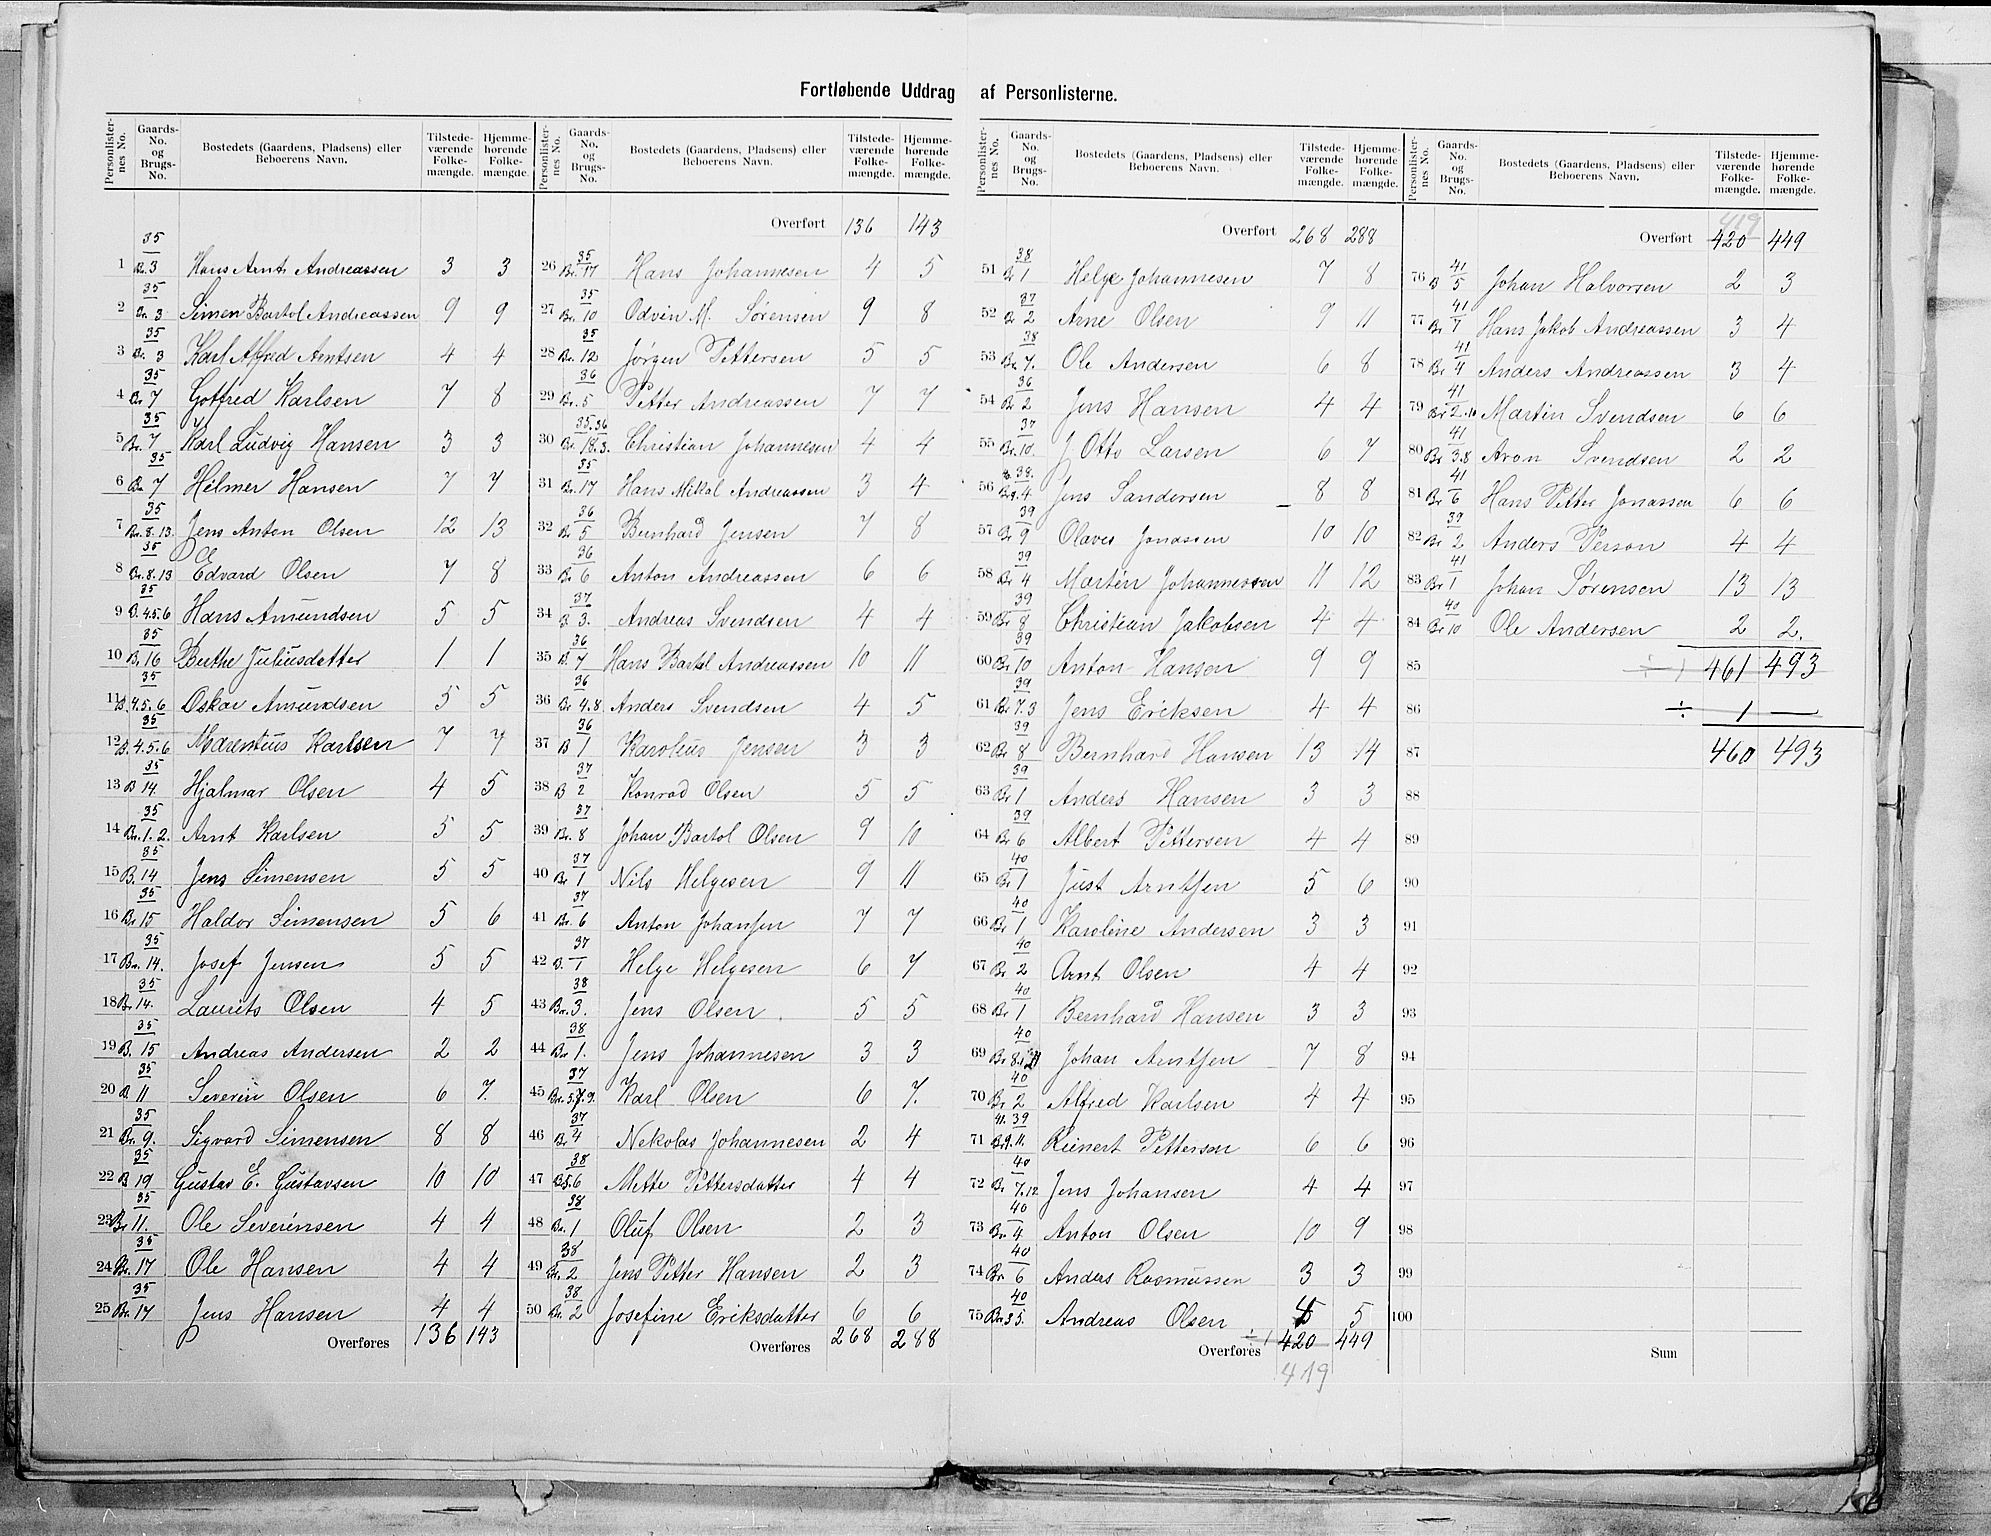 Fortløbende Uddrag af Personlisterne.
Personlisternes No. Gaards-No. og Brugs-No. Bostedets (Gaardens, Pladsens) eller Beboerens Navn. Tilstedeværende Folkemængde. Hjemmehørende Folkemængde.
1 35 Br. 3 Hans Arnt Andreassen 3 3
2 35 Br. 3 Simen Bartol Andreassen 9 9
3 35 Br. 3 Karl Alfred Arntsen 4 4
4 35 Br 7 Gotfred Karlsen 7 8
5 35 Br. 7 Karl Ludvig Hansen 3 3
6 35 Br. 7 Hilmer Hansen 7 7
7 35 Br. 8. 13. Jens Anton Olsen 12 13
8 35 Br. 8. 13 Edvard Olsen 7 8
9 35 B. 4.5.6 Hans Amundsen 5 5
10 35 B. 16 Berthe Juliusdatter 1 1
11 35 B. 4.5.6 Oskar Amundsen 5 5
12 35 B. 4.5.6 Marentius Karlsen 7 7
13 35 B 14. Hjalmar Olsen 4 5
14 35 Br. 1. 2. Arnt Karlsen 5 5
15 35 B. 14 Jens Simensen 5 5
16 35 Br 15 Haldor Simensen 5 6
17 35 Br. 14. Josef Jensen 5 5
18 35 Br. 14. Laurits Olsen 4 5
19 35 B. 15 Andreas Andersen 2 2
20 35 B. 11 Severin Olsen 6 7.
21 35 Br. 9. Sigvard Simensen 8 8
22 35 B 19 Gustav E. Gustavsen 10 10
23 35 Br 11. Ole Severinsen 4 4
24 35 Br. 17 Ole Hansen 4 4
25 35 Br. 17 Jens Hansen 4 4
Overføres 136 143
Personlisternes No. Gaards-No. og Brugs-No. Bostedets (Gaardens, Pladsens) eller Beboerens Navn. Tilstedeværende Folkemængde. Hjemmehørende Folkemængde.
Overført 136 143
26 35 Br. 17 Hans Johannesen 4 5
27 35 Br. 10 Odvin M. Sørensen 9 8
28 35 Br. 12 Jørgen Pettersen 5 5
29 36 Br. 5 Petter Andreassen 7 7
30 35.36 Br. 18.3. Christian Johannesen 4 4
31 35 Br. 17 Hans Mikal Andreassen 3 4
32 36 Br 5 Bernhard Jensen 7 8
33 36 Br 6 Anton Andreassen 6 6
34 37 B. 3. Andreas Svendsen 4 4
35 36 B. 7 Hans Bartol Andreassen 10 11
36 36 Br 4.8 Anders Svendsen 4 5
37 36 B 1 Karolius Jensen 3 3
38 37 B 2 Konrad Olsen 5 5
39 37 Br. 8 Johan Bartol Olsen 9 10
40 37 Br 1 Nils Helgesen 9 11
41 37 Br. 6 Anton Johansen 7 7
42 37 B. 1 Helge Helgesen 6 7
43 38 Br. 3. Jens Olsen. 5 5
44 38 Br 1. Jens Johannesen 3 3
45 37 Br. 5.7.9. Karl Olsen 6 7.
46 37 Br 4 Nekolas Johannesen 2 4
47 38 B 5.6 Mette Pettersdatter 4 4
48 38 Br. 1 Oluf Olsen 2 3
49 38 Br. 2 Jens Petter Hansen 2 3
50 38 Br. 2 Josefine Eriksdatter 6 6
Overføres 268 288
Personlisternes No. Gaards-No. og Brugs-No. Bostedets (Gaardens, Pladsens) eller Beboerens Navn. Tilstedeværende Folkemængde. Hjemmehørende Folkemængde.
Overført 268 288
51 38 Br 1 Helge Johannesen 7 8
52 37 Br 2 Arne Olsen 9 11
53 38 Br 7. Ole Andersen 6 8
54 36 Br 2 Jens Hansen 4 4
55 37 Br. 10. J. Otto Larsen 6 7
56 38. 4 Jens Sandersen 8 8
57 39 Br 9 Olaves Jonassen 10 10
58 39 Br 4 Martin Johannessen 11 12
59 39 Br 8 Christian Jakobsen 4 4
60 39 Br 10 Anton Hansen 9 9
61 39 Br 7.3 Jens Eriksen 4 4
62 39 Br 8 Bernhard Hansen 13 14
63 39 Br 1 Anders Hansen 3 3
64 39 Br 6 Albert Pettersen 4 4
65 40 Br 1 Just Arntsen 5 6
66 40 Br 1 Karoline Andersen 3 3
67 40 Br 2 Arnt Olsen 4 4
68 40 Br 1 Bernhard Hansen 3 3
69 40 Br 8. Johan Arntsen 7 8
70 40 Br 2 Alfred Karlsen 4 4
71 39 11. Reinert Pettersen 6 6
72 40 Br 7.12 Jens Johansen 4 4
73 40 Br. 4 Anton Olsen 10 9
74 40 Br 6 Anders Rasmussen 3 3
75 40 Br. 3 5. Andreas Olsen 5 5
Overføres ÷ 1 420 449
419
Personlisternes No. Gaards-No. og Brugs-No. Bostedets (Gaardens, Pladsens) eller Beboerens Navn. Tilstedeværende Folkemængde. Hjemmehørende Folkemængde.
419
Overført 420 449
76 41 B 5 Johan Halvorsen 2 3
77 41 Br 7 Hans Jakob Andreassen 3 4
78 41 Br 4 Anders Andreassen 3 4
79 41 Br 2.10 Martin Svendsen 6 6
80 41 Br 3.8 Aron Svendsen 2 2
81 41 Br 6 Hans Petter Jonassen 6 6
82 39 Br 2 Anders Person 4 4
83 41 Br 1 Johan Sørensen 13 13
84 40 Br 10 Ole Andersen 2 2.
85 ÷ 1 461 493
86 ÷ 1 —
87 460 493
88
89
90
91
92
93
94
95
96
97
98
99
100
Sum